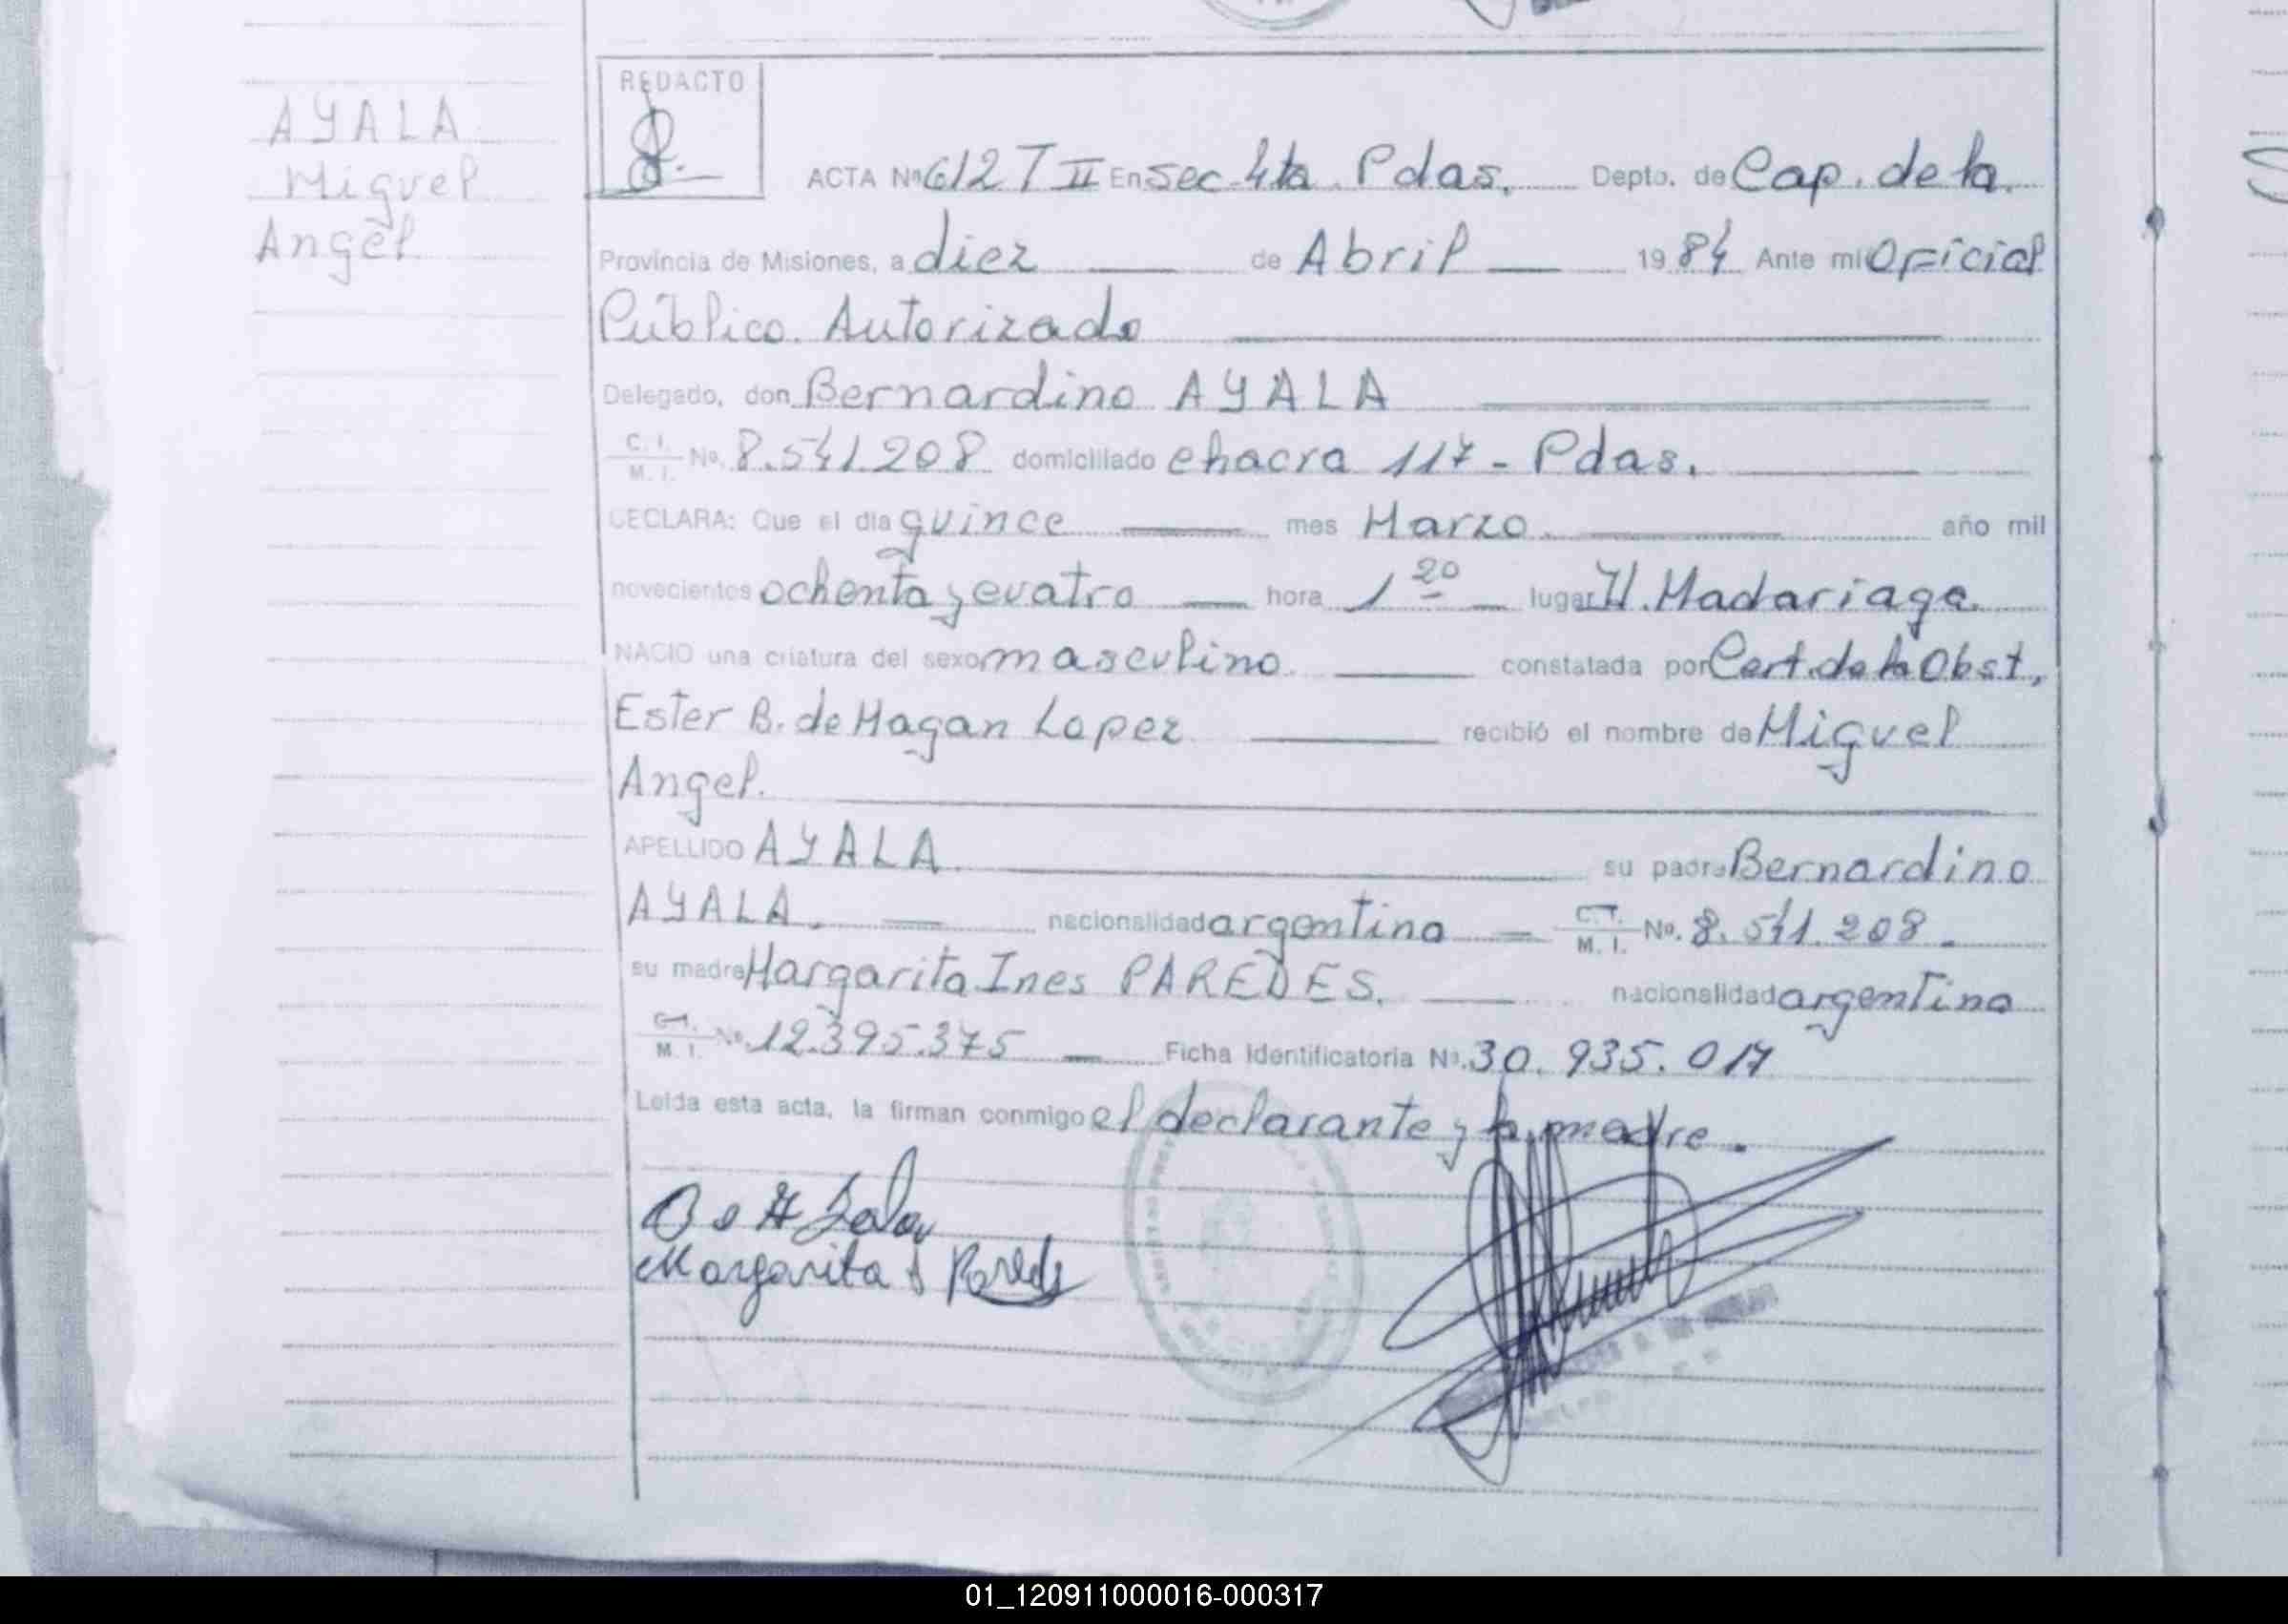 AYALA
Miguel
Angel.
REDACTO
ACTA Nº 612 T II En Sec. 4ta. Pdas. Depto. de Cap. de la
Provincia de Misiones, a diez de Abril 1984 Ante mi Oficial
Público Autorizado
Delegado, don Bernardino AYALA
C. I. / M. I. No. 8.541.208 domiciliado chacra 117 - Pdas.
DECLARA: Que el día quince mes Marzo. año mil
novecientos ochenta y cuatro hora 1 20 lugar H. Madariaga.
NACIO una criatura del sexo masculino. constatada por Cert. de la Obst,
Ester B. de Hagan Lopez recibió el nombre de Miguel
Angel.
APELLIDO AYALA. su padre Bernardino
AYALA. nacionalidad argentina C. I. / M. I. No. 8.541.208.
su madre Margarita Ines PAREDES. nacionalidad argentina
C. I. / M. I. No. 12.395.375 Ficha Identificatoria Nº. 30.935.017
Leída esta acta, la firman conmigo el declarante y la madre.
Margarita I Paredes
01_120911000016-000317